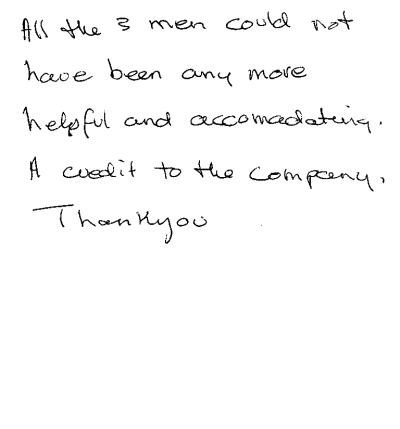 All the 3 men could not
have been any more
helpful and accomadating.
A credit to the company,
Thankyou